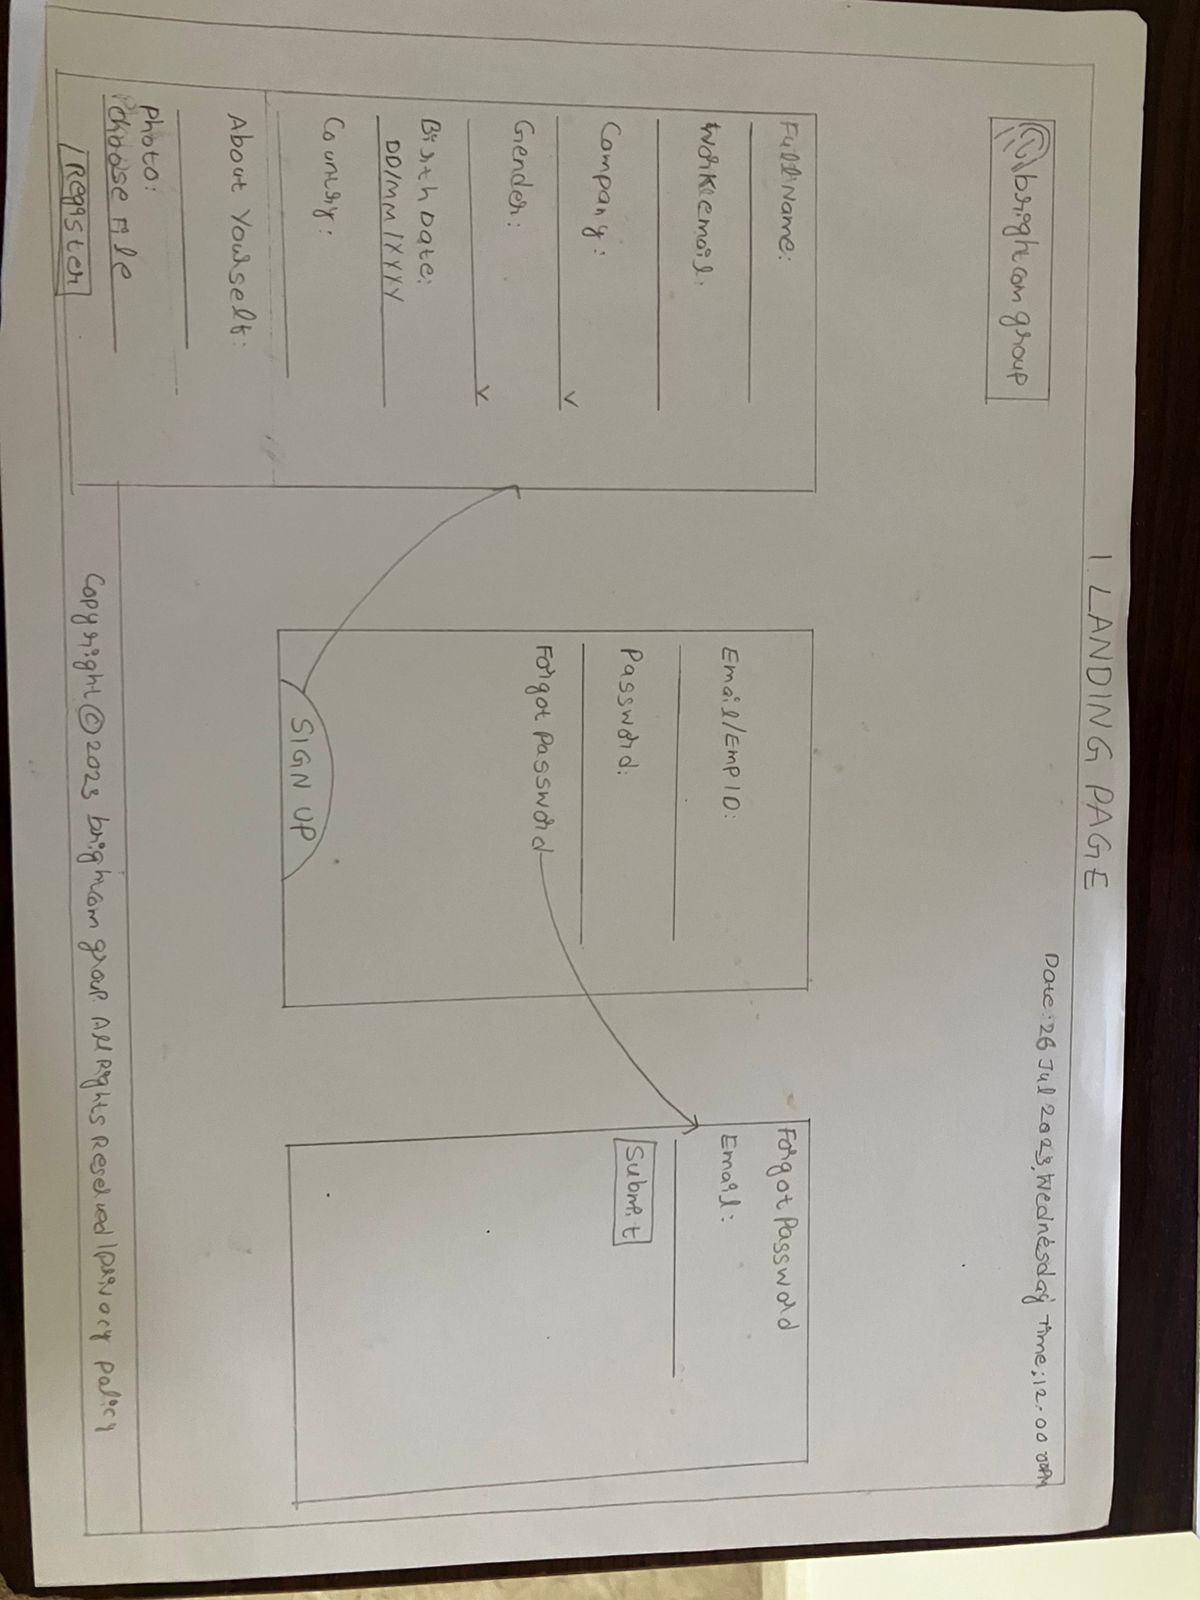 1. LANDING PAGE
Date: 26 Jul 2023, Wednesday Time: 12:00
brightcom group
Full Name:
Work email:
Company:
Gender:
Birth Date:
DD/MM/YYYY
Country:
About Yourself:
Photo:
choose File
Register
Email/Emp ID:
Password:
Forgot Password
SIGN UP
Forgot Password
Email:
Submit
Copyright © 2023 brightcom group. All Rights Reserved | privacy policy